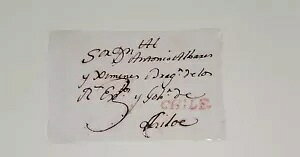 Sor Dn Antonio Alvares
y Ximenes Brigr de los
Rs Exos y Gobr de
CHILE
Chiloe